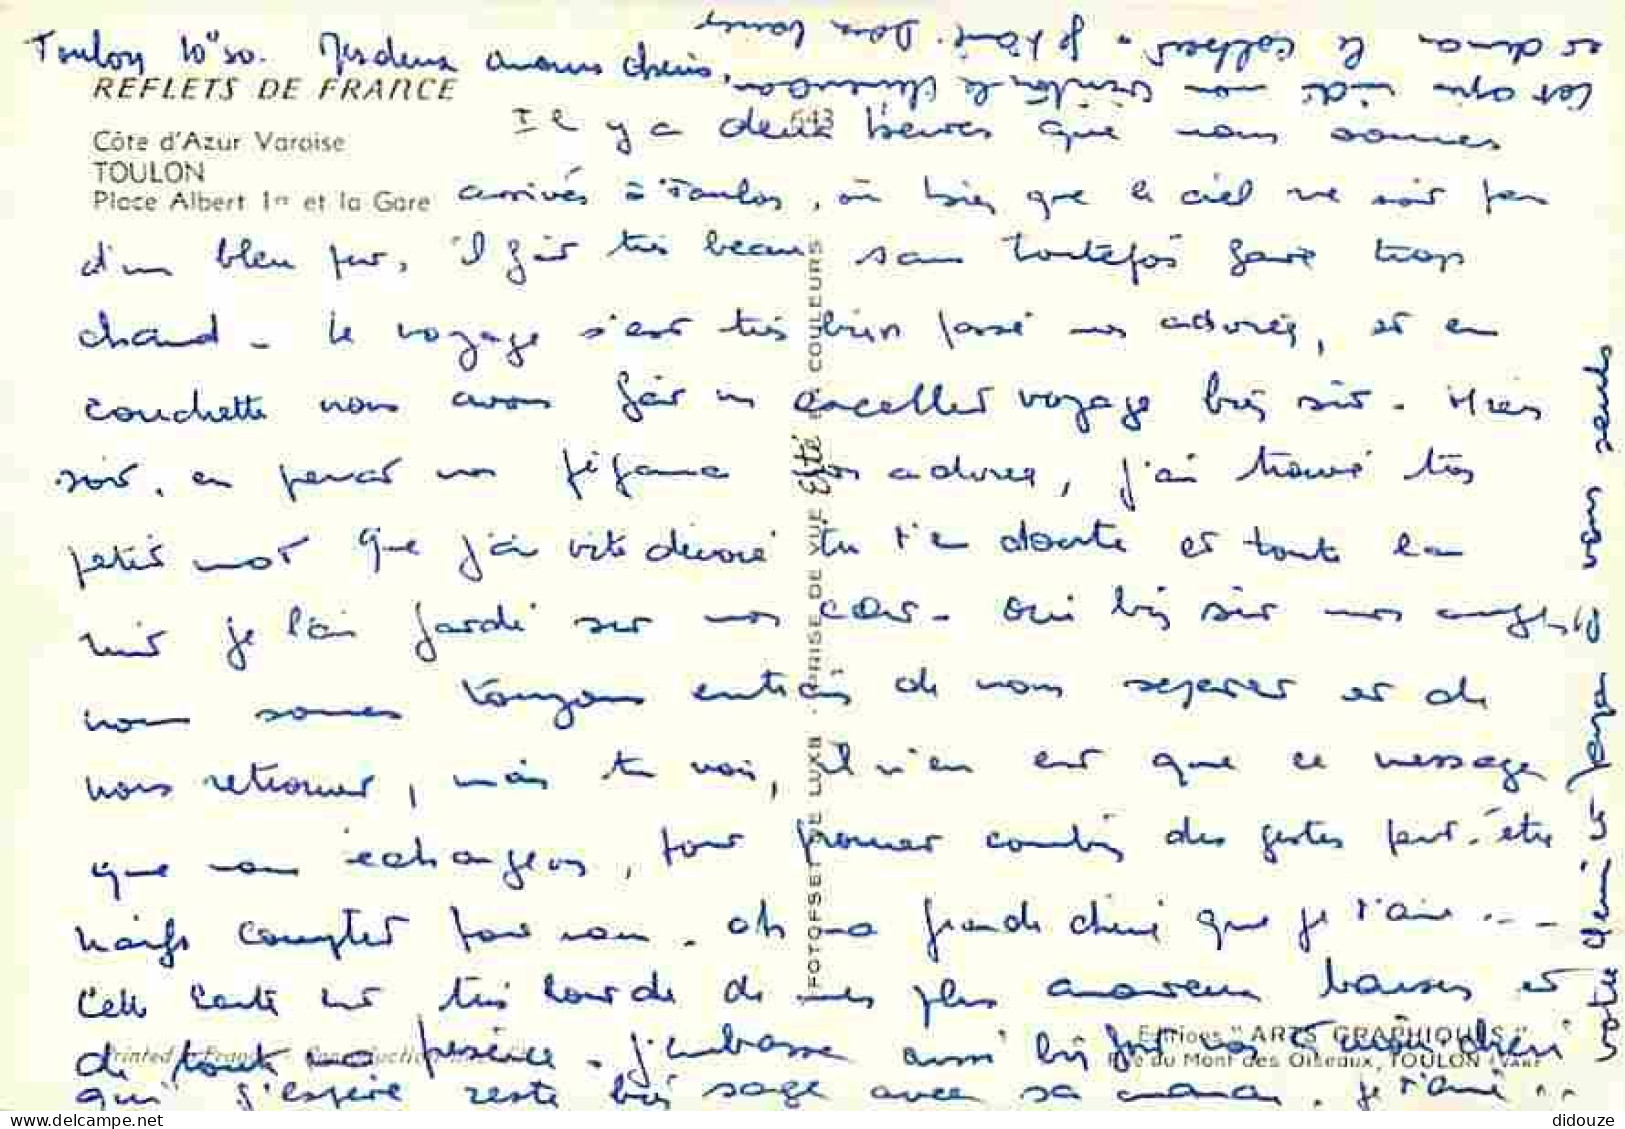 Toulon 10h30. Mes deux amours chéris,
REFLETS DE FRANCE
643
Côte d'Azur Varoise
TOULON
Place Albert 1er et la Gare
Il y a deux heures que nous sommes
arrivés à Toulon, où bien que le ciel ne soit pas
d'un bleu pur, il fait très beau sans toutefois faire trop
chaud - Le voyage s'est très bien passé mes adorés, et en
couchette nous avons fait un excellent voyage bien sûr - Hier
soir, en prenant mon pyjama mes adorés, j'ai trouvé ton
petit mot que j'ai vite dévoré tu t'en doute et toute la
nuit je l'ai gardé sur mon cœur - Oui bien sûr mes anges
nous sommes toujours entrain de nous séparer et de
nous retrouver, mais tu vois, il n'en est que ce message
que nous échangeons, pour prouver combien des gestes peut-être
naïfs compter pour nous - Oh ma grande chérie que je t'aime ...
Cette carte est très lourde de mes plus amoureux baisers et
de toute ma présence - j'embrasse aussi bien fort notre chéri
qui j'espère reste bien sage avec sa maman. je t'aime ...
Cet après midi mon
et demain le Colbert. je t'aime.
votre et papa à vous seuls
FOTOFSET DE LUXE - PRISE DE VUE Elté EN COULEURS
Printed in France - Reproduction
Editions "ARTS GRAPHIQUES"
Rue du Mont des Oiseaux, TOULON (VAR)
didouze